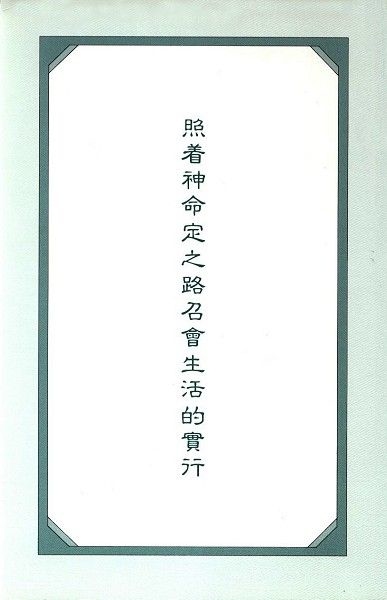 照着神命定之路召會生活的實行